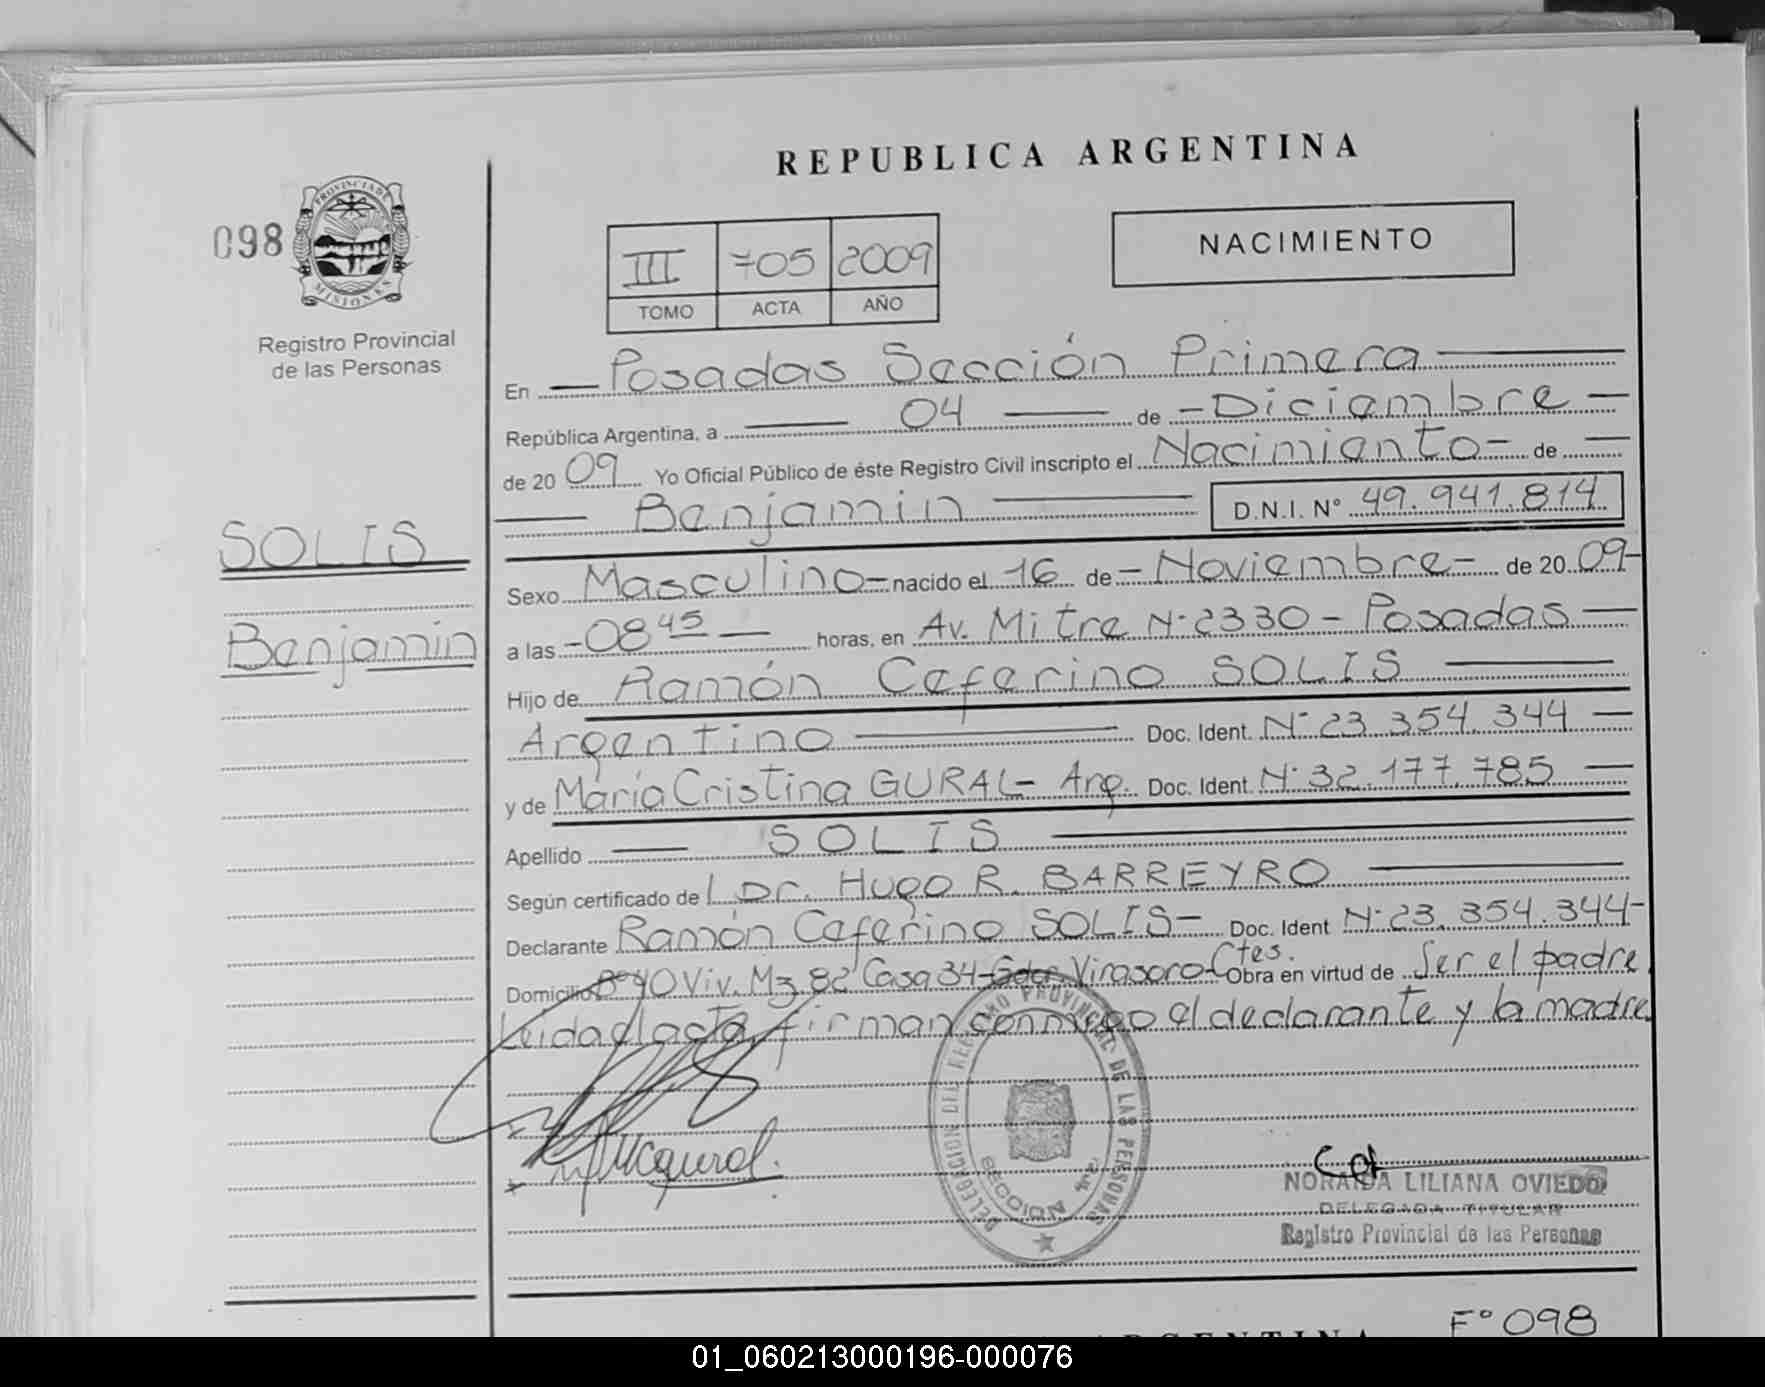 REPUBLICA ARGENTINA
098
PROVINCIA DE
MISIONES
Registro Provincial
de las Personas
III 705 2009
TOMO ACTA AÑO
NACIMIENTO
En Posadas Sección Primera
República Argentina, a 04 de Diciembre
de 2009 Yo Oficial Público de éste Registro Civil inscripto el Nacimiento de
Benjamin D.N.I. Nº 49.941.814
SOLIS
Benjamin
Sexo Masculino nacido el 16 de Noviembre de 2009
a las 08 45 horas, en Av. Mitre Nº 2330 - Posadas
Hijo de Ramón Ceferino SOLIS
Argentino Doc. Ident. Nº 23.354.344
y de María Cristina GURAL - Arg. Doc. Ident. Nº 32.177.785
Apellido SOLIS
Según certificado de l Dr. Hugo R. BARREYRO
Declarante Ramón Ceferino SOLIS - Doc. Ident Nº 23.354.344
Domicilio Bº 40 Viv. Mz 82 Casa 34 - Gdor. Virasoro - Ctes. Obra en virtud de Ser el padre.
Leida el acta, firman conmigo el declarante y la madre.
DELEGACION DEL REGISTRO PROVINCIAL DE LAS PERSONAS
SECCION 1ª
NORAIDA LILIANA OVIEDO
DELEGADA TITULAR
Registro Provincial de las Personas
Fº 098
ARGENTINA
01_060213000196-000076